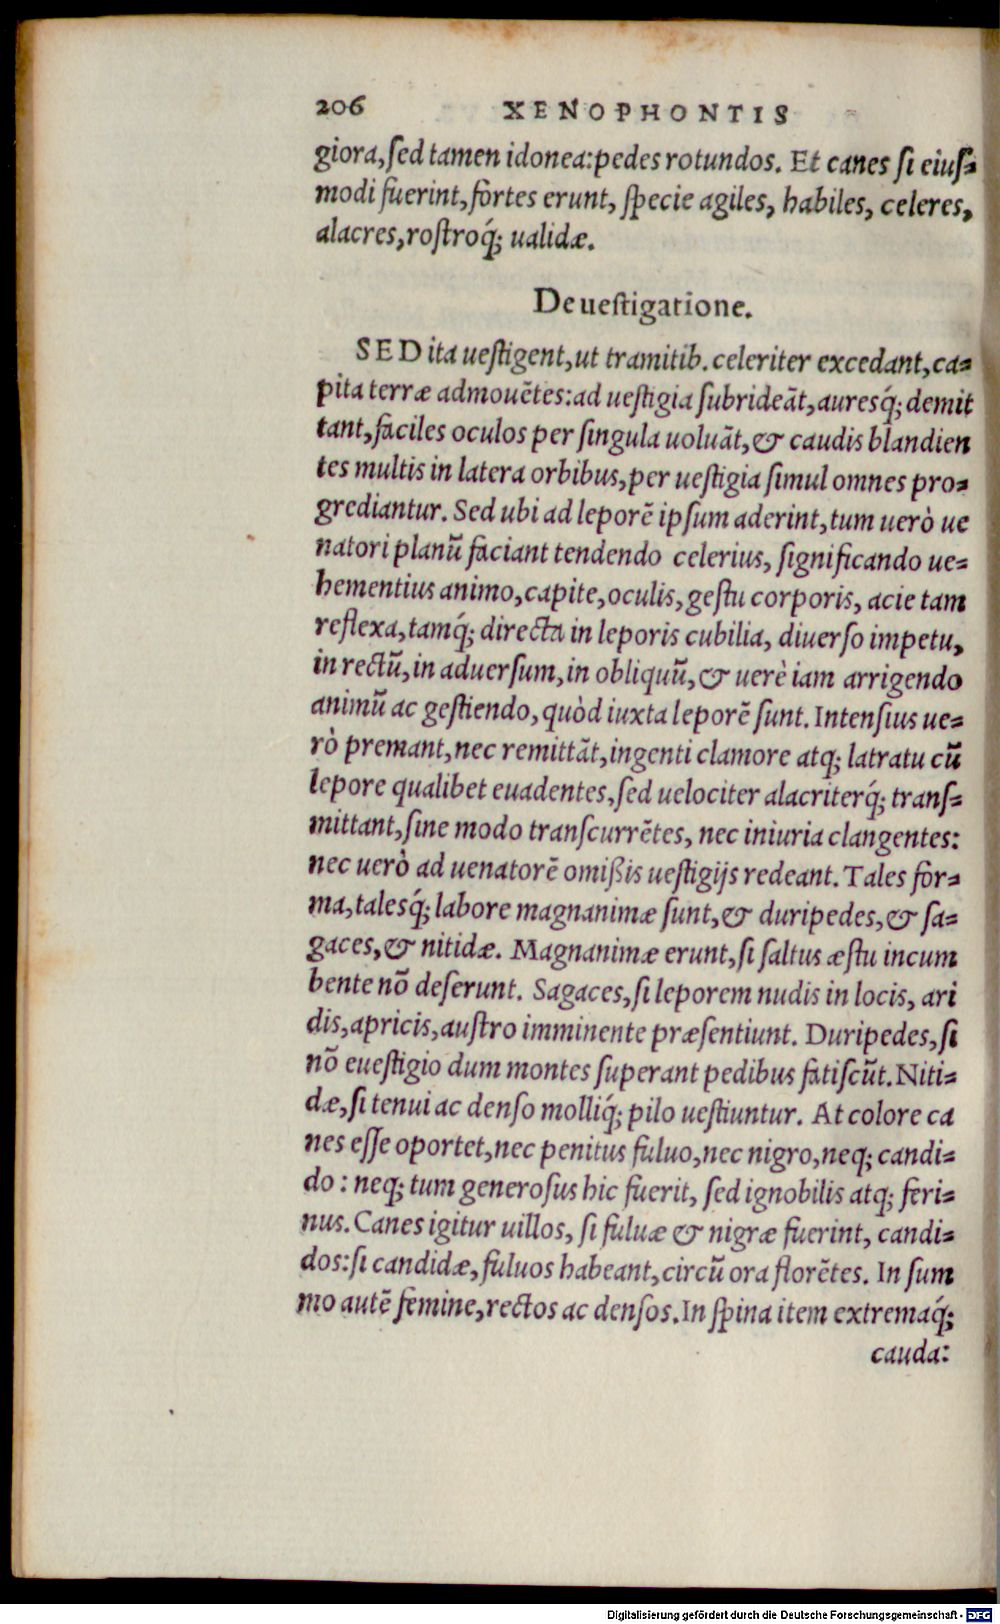 206 XENOPHONTIS
giora, ſed tamen idonea: pedes rotundos. Et canes ſi eiuſ-
modi fuerint, fortes erunt, ſpecie agiles, habiles, celeres,
alacres, roſtroq́; ualidæ.
De ueſtigatione.
SED ita ueſtigent, ut tramitib. celeriter excedant, ca-
pita terræ admouẽtes: ad ueſtigia ſubrideãt, auresq́; demit
tant, faciles oculos per ſingula uoluãt, & caudis blandien
tes multis in latera orbibus, per ueſtigia ſimul omnes pro-
grediantur. Sed ubi ad leporẽ ipſum aderint, tum uerò ue
natori planũ faciant tendendo celerius, ſignificando ue-
hementius animo, capite, oculis, geſtu corporis, acie tam
reflexa, tamq́; directa in leporis cubilia, diuerſo impetu,
in rectũ, in aduerſum, in obliquũ, & uerè iam arrigendo
animũ ac geſtiendo, quòd iuxta leporẽ ſunt. Intenſius ue-
rò premant, nec remittãt, ingenti clamore atq; latratu cũ
lepore qualibet euadentes, ſed uelociter alacriterq́; tranſ-
mittant, ſine modo tranſcurrẽtes, nec iniuria clangentes:
nec uerò ad uenatorẽ omiſsis ueſtigijs redeant. Tales for-
ma, talesq́; labore magnanimæ ſunt, & duripedes, & ſa-
gaces, & nitidæ. Magnanimæ erunt, ſi ſaltus æſtu incum
bente nõ deſerunt. Sagaces, ſi leporem nudis in locis, ari
dis, apricis, auſtro imminente præſentiunt. Duripedes, ſi
nõ eueſtigio dum montes ſuperant pedibus fatiſcũt. Niti-
dæ, ſi tenui ac denſo molliq́; pilo ueſtiuntur. At colore ca
nes eſſe oportet, nec penitus fuluo, nec nigro, neq; candi-
do: neq; tum generoſus hic fuerit, ſed ignobilis atq; feri-
nus. Canes igitur uillos, ſi fuluæ & nigræ fuerint, candi-
dos: ſi candidæ, fuluos habeant, circũ ora florẽtes. In ſum
mo autẽ femine, rectos ac denſos. In ſpina item extremaq́;
cauda:
Digitalisierung gefördert durch die Deutsche Forschungsgemeinschaft - DFG